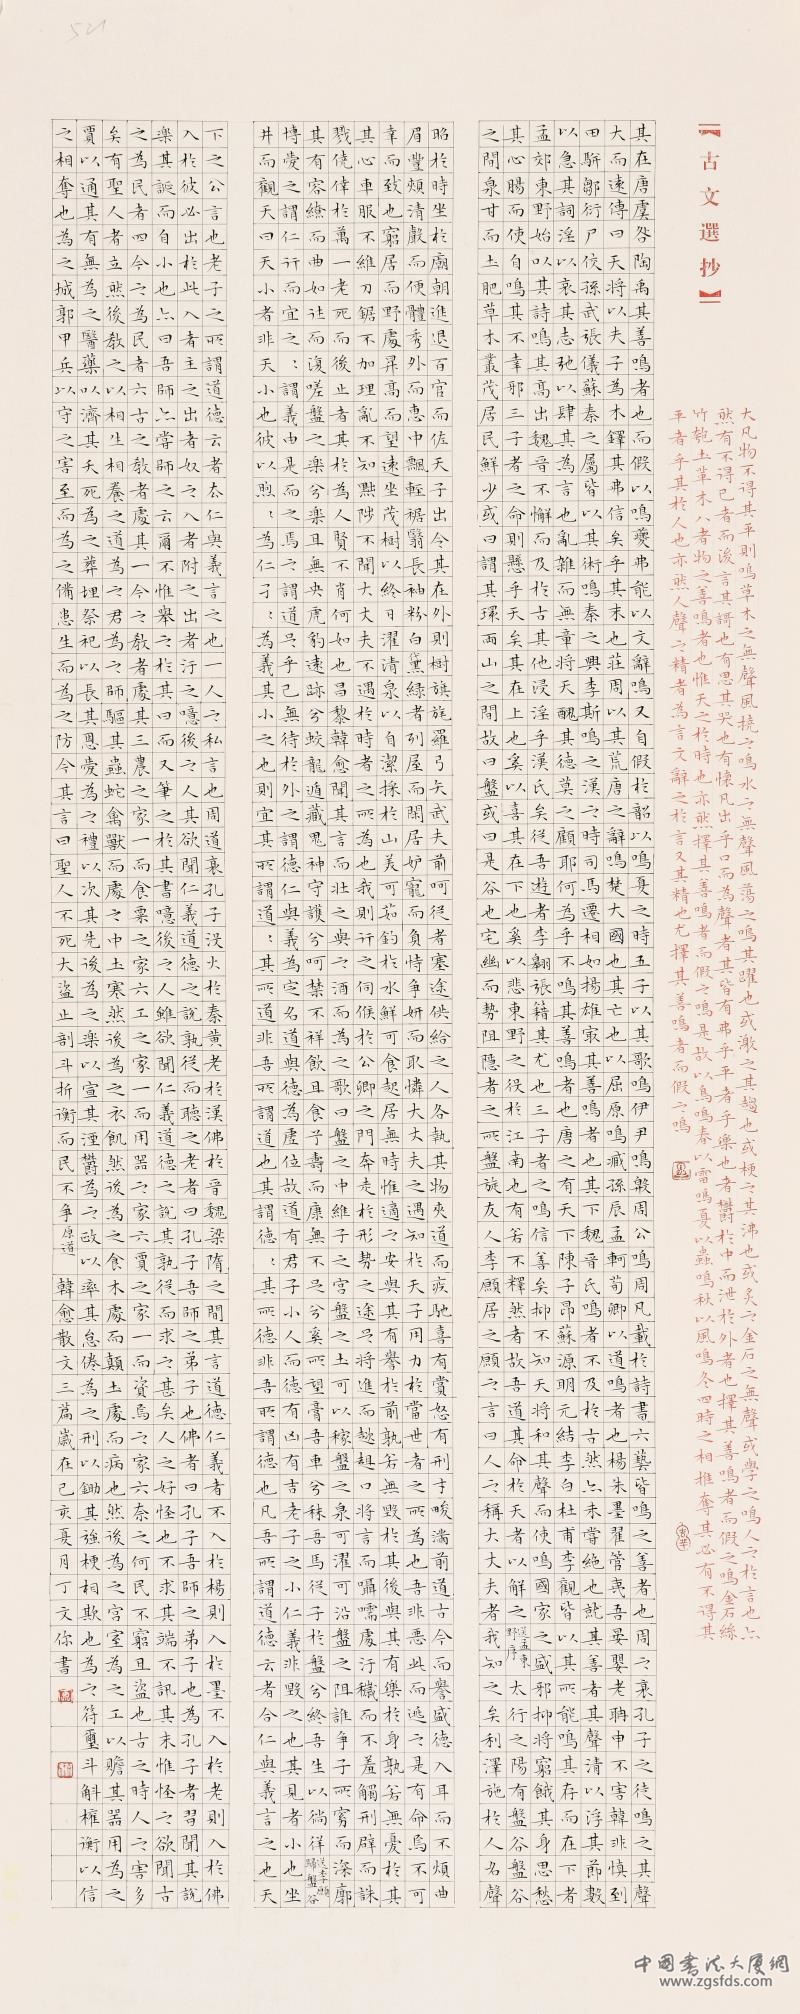 【古文選抄】
大凡物不得其平則鳴草木之無聲風撓之鳴水之無聲風蕩之鳴其躍也或激之其趨也或梗之其沸也或炙之金石之無聲或擊之鳴人之於言也亦
然有不得已者而後言其謌也有思其哭也有懷凡出乎口而為聲者其皆有弗乎平者乎樂也者鬱於中而泄於外者也擇其善鳴者而假之鳴金石絲
竹匏土革木八者物之善鳴者也惟天之於時也亦然擇其善鳴者而假之鳴是故以鳥鳴春以雷鳴夏以蟲鳴秋以風鳴冬四時之相推奪其必有不得其
平者乎其於人也亦然人聲之精者為言文辭之於言又其精也尤擇其善鳴者而假之鳴
其在唐虞咎陶禹其善鳴者也而假以鳴夔弗能以文辭鳴又自假於韶以鳴夏之時五子以其歌鳴伊尹鳴殷周公鳴周凡載於詩書六藝皆鳴之善者也周之衰孔子之徒鳴之其聲
大而遠傳曰天將以夫子為木鐸其弗信矣乎其末也莊周以其荒唐之辭鳴楚大國也其亡也以屈原鳴臧孫辰孟軻荀卿以道鳴者也楊朱墨翟管夷吾晏嬰老聃申不害韓非慎到
田駢鄒衍尸佼孫武張儀蘇秦之屬皆以其術鳴秦之興李斯鳴之漢之時司馬遷相如揚雄最其善鳴者也其下魏晉氏鳴者不及於古然亦未嘗絕也就其善者其聲清以浮其節數
以急其詞淫以哀其志弛以肆其為言也亂雜而無章將天醜其德莫之顧耶何為乎不鳴其善鳴者也唐之有天下陳子昂蘇源明元結李白杜甫李觀皆以其所能鳴其存而在下者
孟郊東野始以其詩鳴其高出魏晉不懈而及於古其他浸淫乎漢氏矣從吾遊者李翱張籍其尤也三子者之鳴信善矣抑不知天將和其聲而使鳴國家之盛邪抑將窮餓其身思愁
其心腸而使自鳴其不幸邪三子者之命則懸乎天矣其在上也奚以喜其在下也奚以悲東野之役於江南也有若不釋然者故吾道其命於天者以解之送孟東野序太行之陽有盤谷盤谷
之間泉甘而土肥草木叢茂居民鮮少或曰謂其環兩山之間故曰盤或曰是谷也宅幽而勢阻隱者之所盤旋友人李願居之願之言曰人之稱大丈夫者我知之矣利澤施於人名聲
昭於時坐於廟朝進退百官而佐天子出令其在外則樹旗旄羅弓矢武夫前呵從者塞途供給之人各執其物夾道而疾馳喜有賞怒有刑才畯滿前道古今而譽盛德入耳而不煩曲
眉豐頰清聲而便體秀外而惠中飄輕裾翳長袖粉白黛綠者列屋而閑居妒寵而負恃爭妍而取憐大丈夫之遇知於天子用力於當世者之所為也吾非惡此而逃之是有命焉不可
幸而致也窮居而野處昇高而望遠坐茂樹以終日濯清泉以自潔採於山美可茹釣於水鮮可食起居無時惟適之安與其有譽於前孰若無毀於其後與其有樂於身孰若無憂於其
其心車服不維刀鋸不加理亂不知黜陟不聞大丈夫不遇於時者之所為也我則行之伺候於公卿之門奔走於形勢之途足將進而趑趄口將言而囁嚅處汙穢而不羞觸刑辟而誅
戮僥倖於萬一老死而後止者其於為人賢不肖何如也昌黎韓愈聞其言而壯之與之酒而為之歌曰盤之中維子之宮盤之土可以稼盤之泉可濯可沿盤之阻誰爭子所窈而深廓
其有容繚而曲如往而復嗟盤之樂兮樂且無央虎豹遠跡兮蛟龍遁藏鬼神守護兮呵禁不祥飲且食子壽而康無不足兮奚所望膏吾車兮秣吾馬從子於盤兮終吾生以徜徉送李願歸盤谷
博愛之謂仁行而宜之:謂義由是而之焉之謂道足乎己無待於外之謂德仁與義為定名道與德為虛位故道有君子小人而德有凶有吉老子之小仁義非毀之也其見者小也坐
井而觀天曰天小者非天小也彼以煦:為仁孑:為義其小之也則宜其所謂道:其所道非吾所謂道也其謂德:其所德非吾所謂德也凡吾所謂道德云者合仁與義言之也天
下之公言也老子之所謂道德云者去仁與義言之也一人之私言也周道衰孔子沒火於秦黃老於漢佛於晉魏梁隋之間其言道德仁義者不入於楊則入於墨不入於老則入於佛
入於彼必出於此入者主之出者奴之入者附之出者汙之噫後之人其欲聞仁義道德之說孰從而聽之老者曰孔子吾師之弟子也佛者曰孔子吾師之弟子也為孔子者習聞其說
樂其誕而自小也亦曰吾師亦嘗師之云爾不惟舉之於其口而又筆之於其書噫後之人雖欲聞仁義道德之說其孰從而求之甚矣人之好怪也不求其端不訊其末惟怪之欲聞古
之為民者四今之為民者六古之教者處其一今之教者處其三農之家一而食粟之家六工之家一而用器之家六賈之家一而資焉之家六奈之何民不窮且盜也古之時人之害多
矣有聖人者立然後教之以相生相養之道為之君為之師驅其蟲蛇禽獸而處之中土寒然後為之衣飢然後為之食木處而顛土處而病也然後為之宮室為之工以贍其器用為之
賈以通其有無為之醫藥以濟其夭死為之葬埋祭祀以長其恩愛為之禮以次其先後為之樂以宣其湮鬱為之政以率其怠倦為之刑以鋤其強梗相欺也為之符璽斗斛權衡以信
之相奪也為之城郭甲兵以守之害至而為之備患生而為之防今其言曰聖人不死大盜止剖斗折衡而民不爭原道 韓愈散文三篇歲在己亥夏月丁文你書
中國書法大廈網
www.zgsfds.com